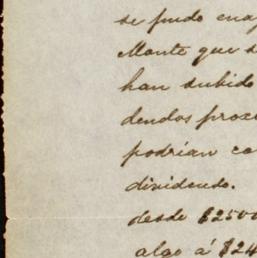 se pudo enaj
Monte que s
han subido
dendos proce
podrían co
dividendo.
desde $2500
algo á $24